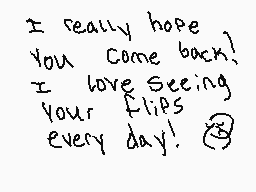 I really hope
you come back!
I love seeing
your flips
every day!